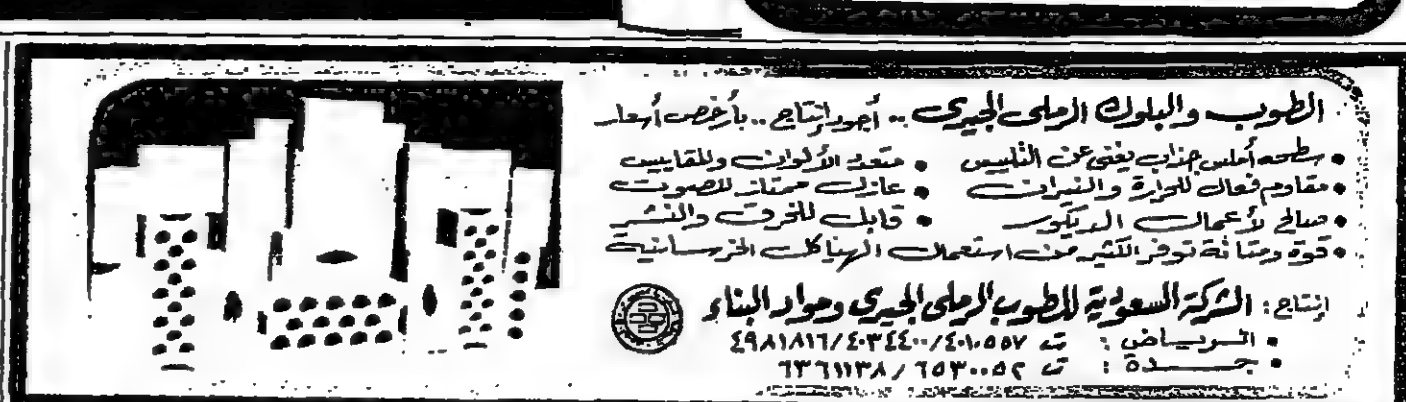 الطوب والبلوك الرملي الجيري .. أجود إنتاج .. بأرخص أسعار
• سطحه أملس جذاب يغني عن التلييس • متعدد الألوان والمقاييس
• مقاوم فعال للحرارة والنيران • عازل ممتاز للصوت
• صالح لأعمال الديكور • قابل للخرق والنشر
• قوة ومتانة توفر الكثير من استعمال الهياكل الخرسانية
إنتاج: الشركة السعودية للطوب الرملي الجيري ومواد البناء
• الرياض : ت ٤٠١٠٥٥٧/٤٠٣٤٤٠٠/٤٩٨١٨١٦
• جدة : ت ٦٥٣٠٠٥٢/٦٣٦١١٣٨